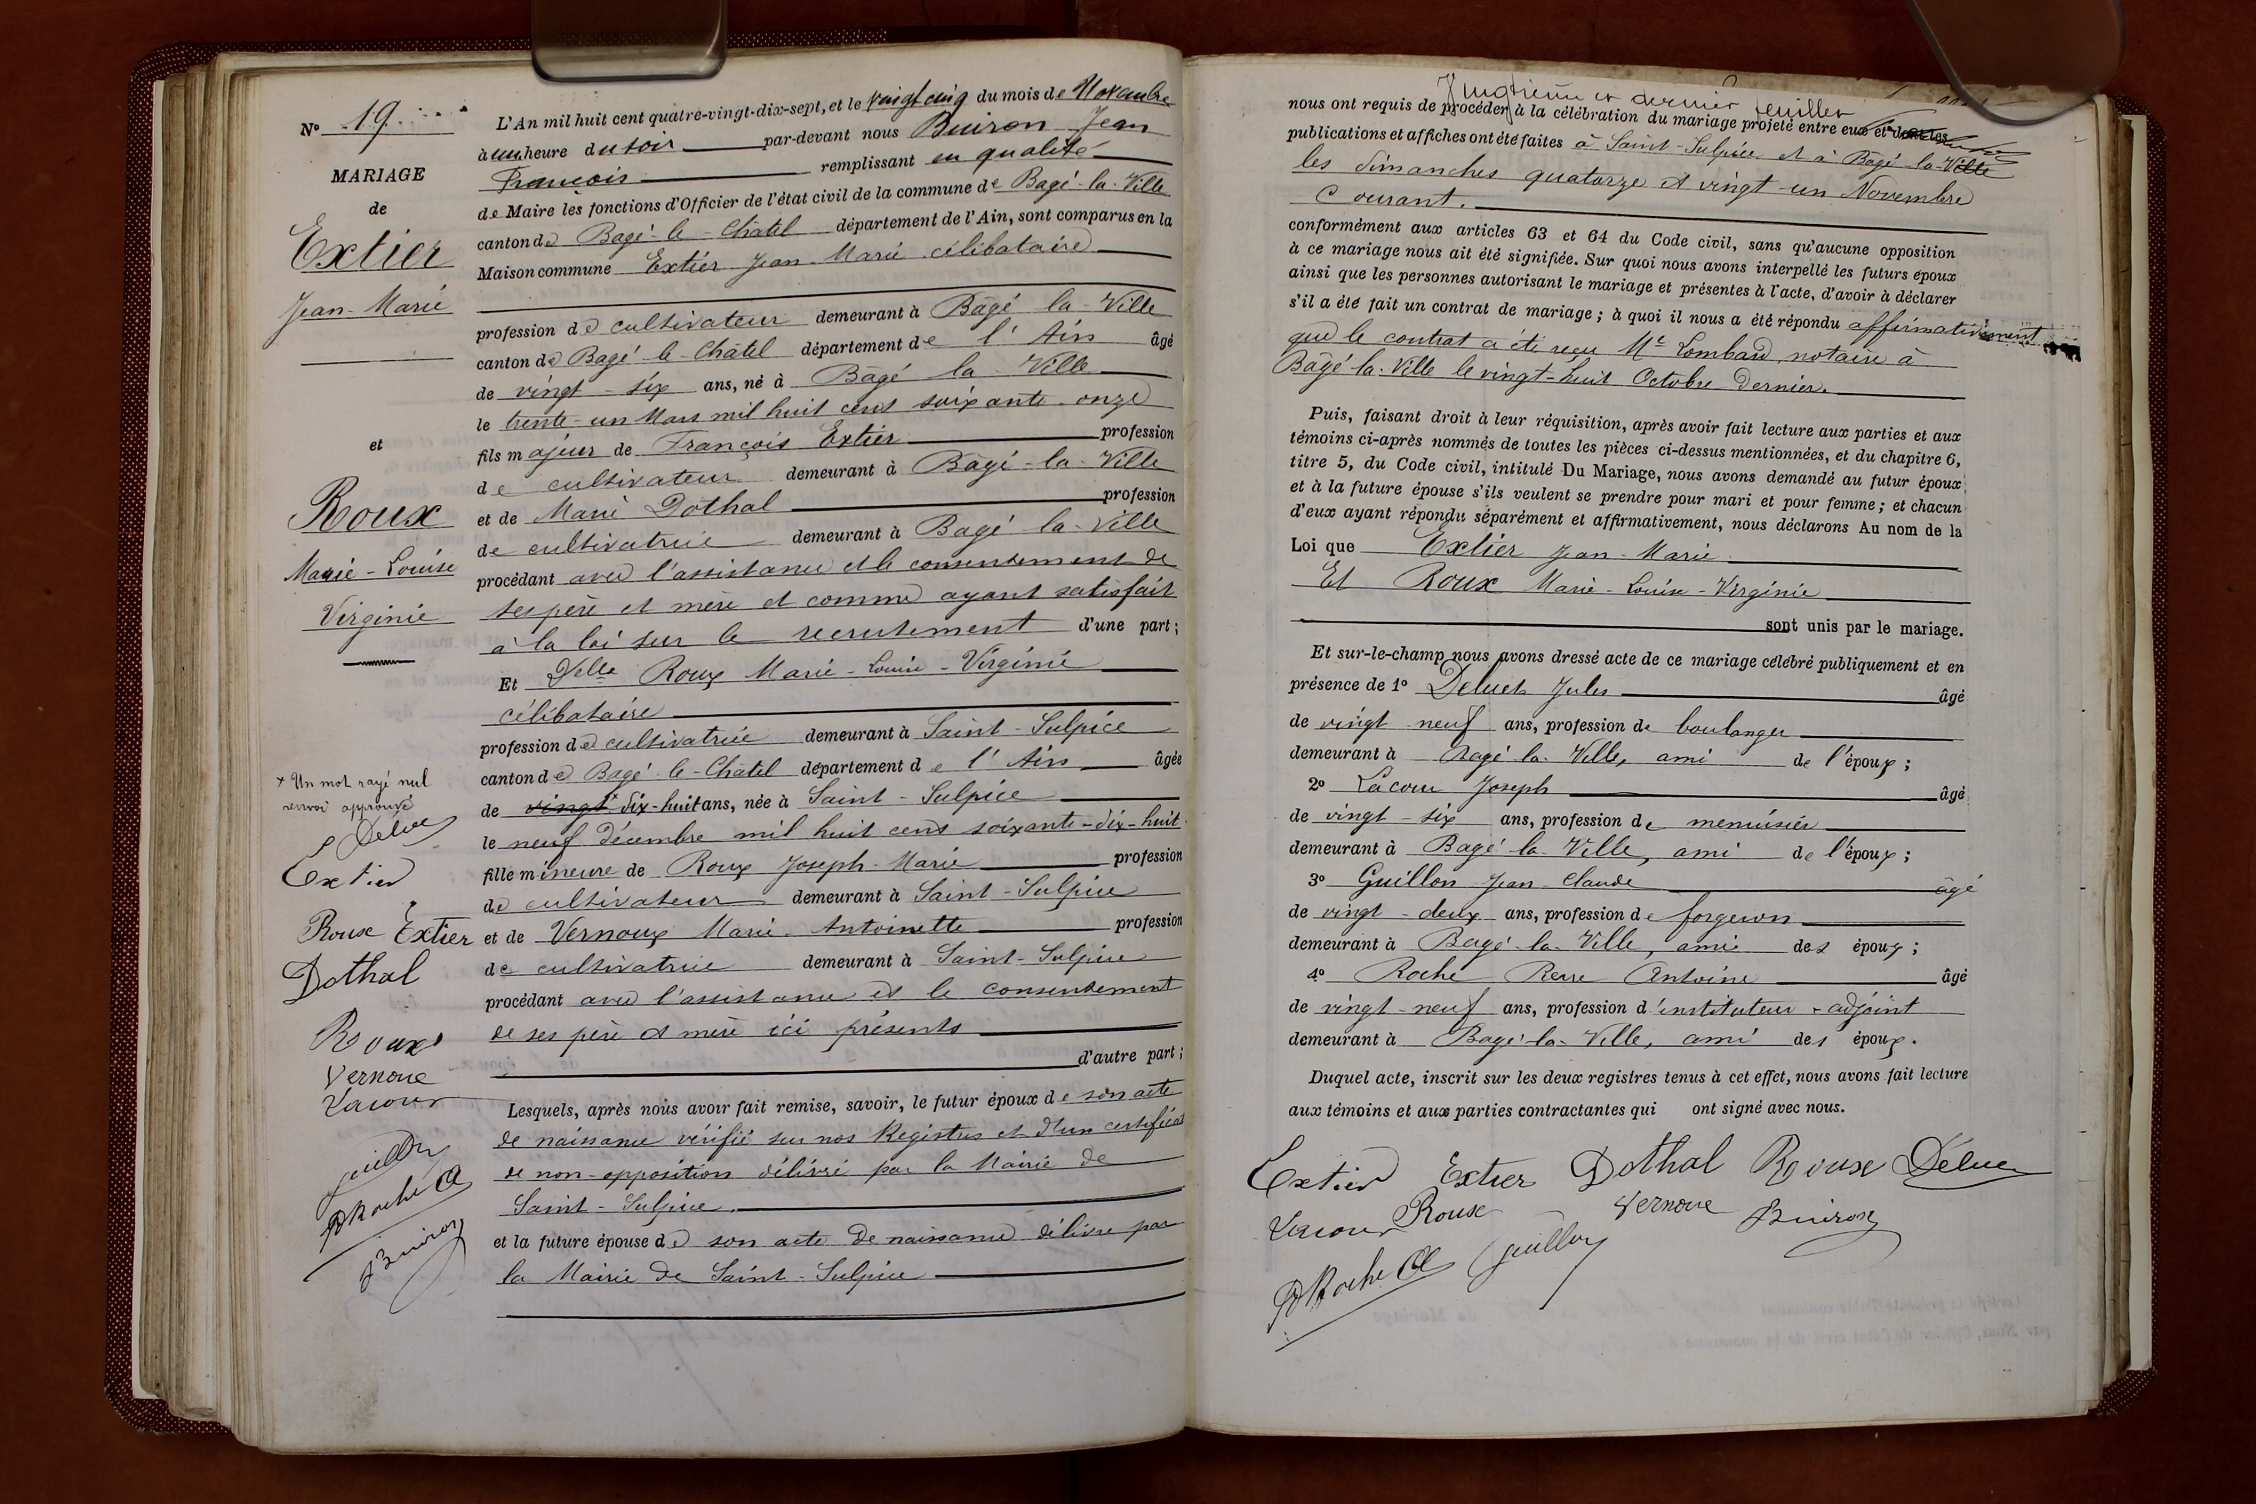 N° 19
MARIAGE
de
Extier
Jean-Marie
et
Roux
Marie-Louise
Virginie
+ Un mot rayé nul
renvoi approuvé
Deluc
Extier
Roux Extier
Dothal
Roux
Vernoux
Lacour
Guillon
P Roche
Buiron
L'An mil huit cent quatre-vingt-dix-sept, et le vingt cinq du mois de Novembre
à une heure du soir par-devant nous Buiron Jean
François remplissant en qualité
de Maire les fonctions d'Officier de l'état civil de la commune de Bagé-la-Ville
canton de Bagé-le-Châtel département de l'Ain, sont comparus en la
Maison commune Extier Jean-Marie célibataire
profession de cultivateur demeurant à Bâgé la-Ville
canton de Bagé-le-Châtel département de l'Ain âgé
de vingt-six ans, né à Bâgé la Ville
le trente-un Mars mil huit cent soixante-onze
fils majeur de François Extier profession
de cultivateur demeurant à Bâgé-la-Ville
et de Marie Dothal profession
de cultivatrice demeurant à Bagé-la-Ville
procédant avec l'assistance et le consentement de
ses père et mère et comme ayant satisfait
à la loi sur le recrutement d'une part;
Et Delle Roux Marie-Louise-Virginie
célibataire
profession de cultivatrice demeurant à Saint-Sulpice
canton de Bagé-le-Châtel département de l'Ain âgée
de vingt dix-huit ans, née à Saint-Sulpice
le neuf décembre mil huit cent soixante-dix-huit
fille mineure de Roux Joseph-Marie profession
de cultivateur demeurant à Saint-Sulpice
et de Vernoux Marie-Antoinette profession
de cultivatrice demeurant à Saint-Sulpice
procédant avec l'assistance et le consentement
de ses père et mère ici présents
d'autre part;
Lesquels, après nous avoir fait remise, savoir, le futur époux de son acte
de naissance vérifié sur nos Registres et d'un certificat
de non-opposition délivré par la Mairie de
Saint-Sulpice.
et la future épouse de son acte de naissance délivré par
la Mairie de Saint-Sulpice
Vingtième et dernier feuillet
nous ont requis de procéder à la célébration du mariage projeté entre eux et dont les
publications et affiches ont été faites à Saint-Sulpice et à Bâgé-la-Ville
les dimanches quatorze et vingt-un Novembre
Courant.
conformément aux articles 63 et 64 du Code civil, sans qu'aucune opposition
à ce mariage nous ait été signifiée. Sur quoi nous avons interpellé les futurs époux
ainsi que les personnes autorisant le mariage et présentes à l'acte, d'avoir à déclarer
s'il a été fait un contrat de mariage; à quoi il nous a été répondu affirmativement
que le contrat a été reçu Me Lombard notaire à
Bâgé-la-Ville le vingt-huit Octobre dernier.
Puis, faisant droit à leur réquisition, après avoir fait lecture aux parties et aux
témoins ci-après nommés de toutes les pièces ci-dessus mentionnées, et du chapitre 6,
titre 5, du Code civil, intitulé Du Mariage, nous avons demandé au futur époux
et à la future épouse s'ils veulent se prendre pour mari et pour femme; et chacun
d'eux ayant répondu séparément et affirmativement, nous déclarons Au nom de la
Loi que Extier Jean-Marie
Et Roux Marie-Louise-Virginie
sont unis par le mariage.
Et sur-le-champ nous avons dressé acte de ce mariage célébré publiquement et en
présence de 1° Jules âgé
de vingt-neuf ans, profession de boulanger
demeurant à Bagé-la-Ville, ami de l'époux;
2° Lacour Joseph âgé
de vingt-six ans, profession de menuisier
demeurant à Bagé-la-Ville, ami de l'époux;
3° Guillon Jean-Claude âgé
de vingt-deux ans, profession de forgeron
demeurant à Bagé-la-Ville, ami des époux;
4° Roche Pierre Antoine âgé
de vingt-neuf ans, profession d'instituteur-adjoint
demeurant à Bagé-la-Ville, ami des époux.
Duquel acte, inscrit sur les deux registres tenus à cet effet, nous avons fait lecture
aux témoins et aux parties contractantes qui ont signé avec nous.
Extier Extier Dothal Roux Deluc
Lacour Roux Vernoux Buiron
P Roche Guillon